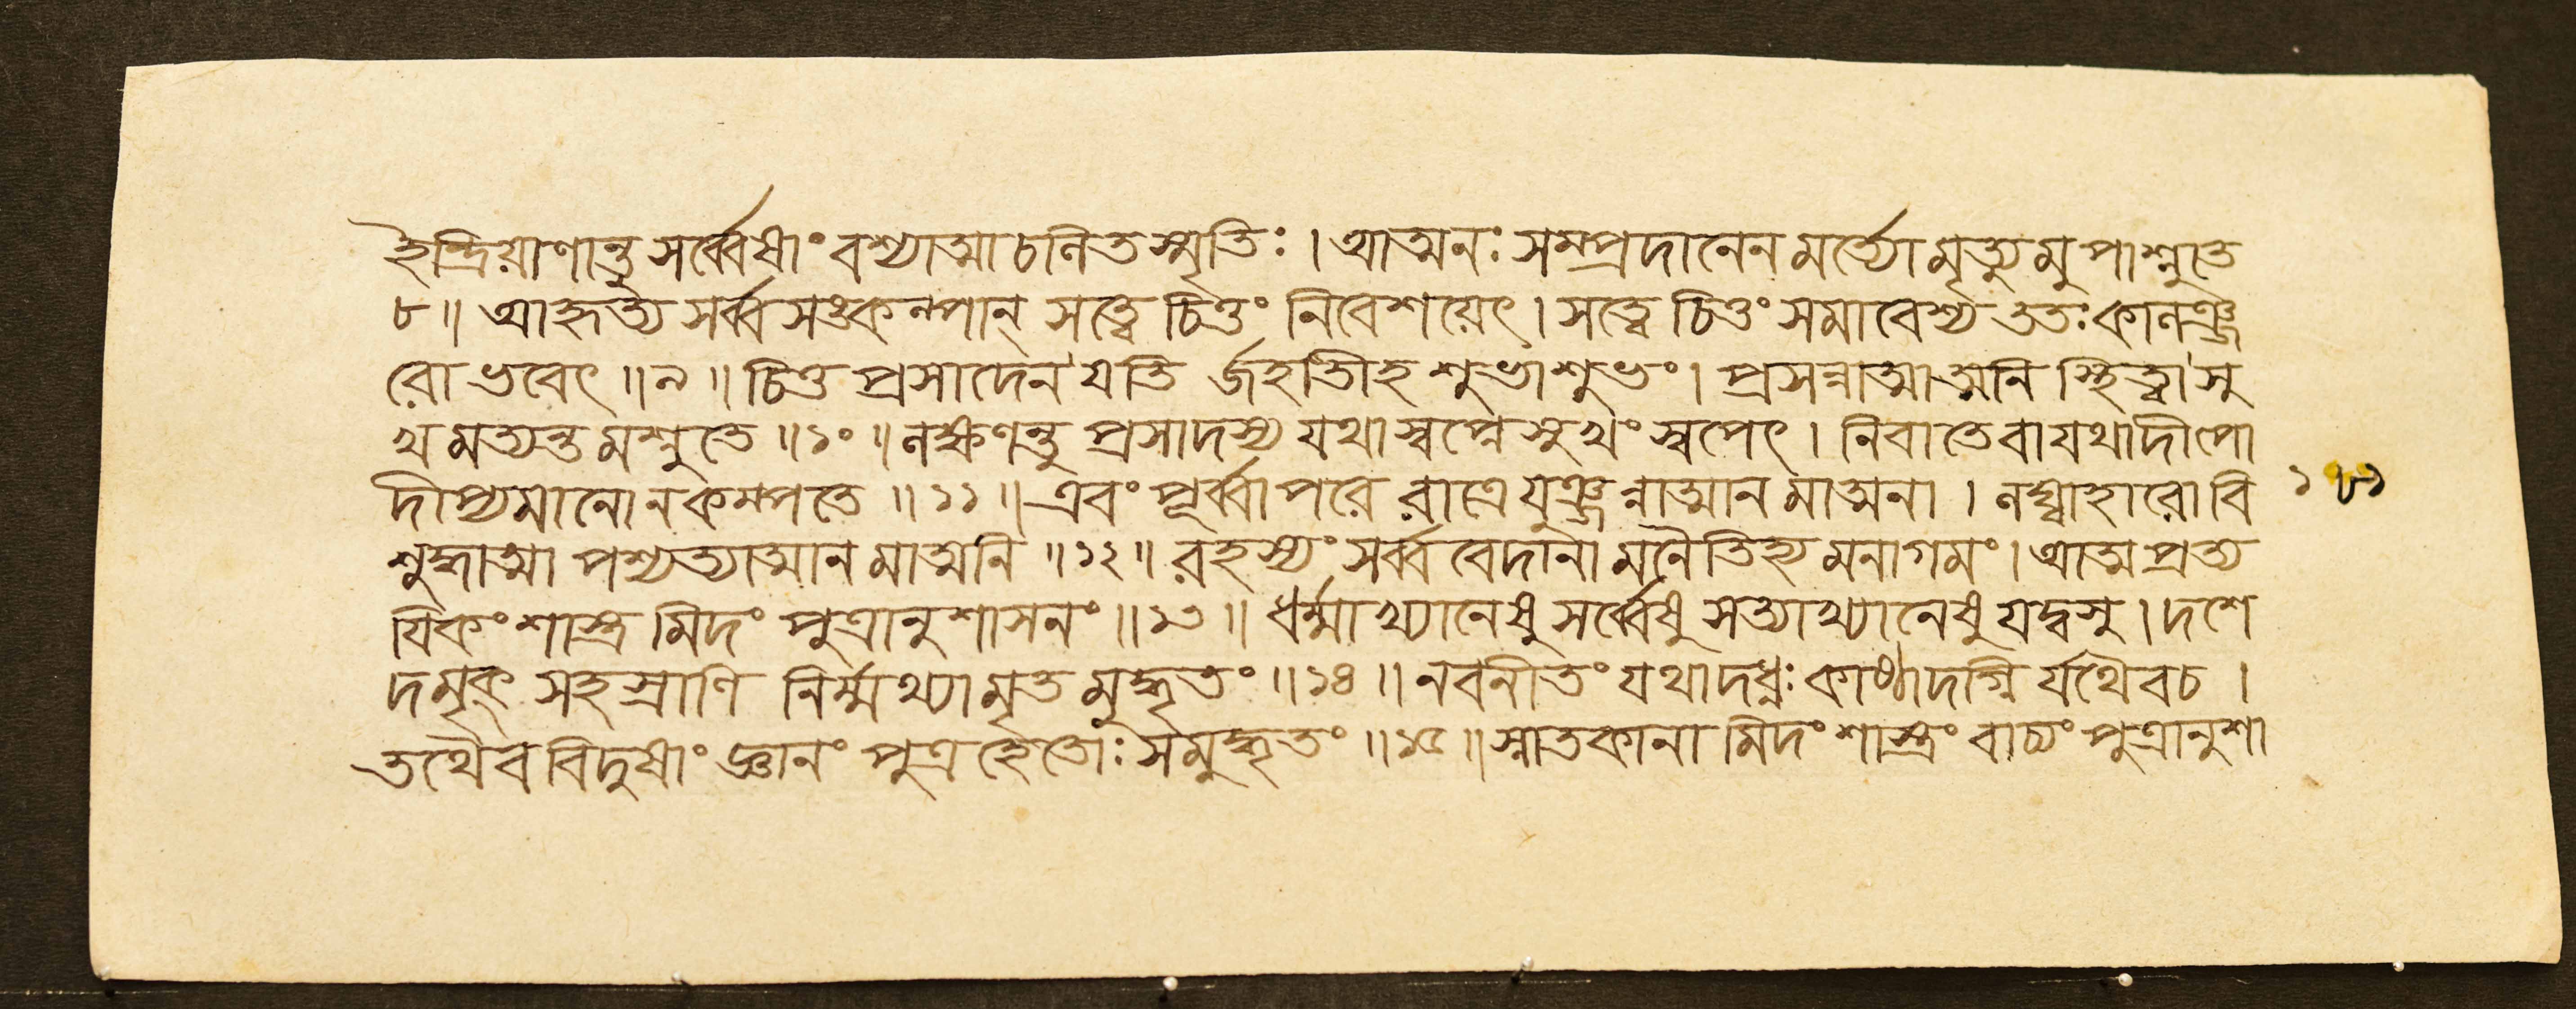 ইন্দ্রিয়াণান্তু সর্ব্বেষাং বশ্যাত্মা চলিত স্মৃতিঃ । আত্মনঃ সম্প্রদানেন মর্ত্যো মৃত্যু মু পাশ্নুতে
৮ ॥ আহৃত্য সর্ব্ব সঙ্কল্পান্ সত্ত্বে চিত্তং নিবেশয়েৎ । সত্ত্বে চিত্তং সমাবেশ্য ততঃ কালঞ্জ
রো ভবেৎ ॥ ৯ ॥ চিত্ত প্রসাদেন যতি র্জহাতীহ শুভাশুভং । প্রসন্নাত্মাত্মনি স্থিত্বা সু
খ মত্যন্ত মশ্নুতে ॥ ১০ ॥ লক্ষণন্তু প্রসাদস্য যথা স্বপ্নে সুখং স্বপেৎ । নিবাতে বা যথা দীপো
দীপ্যমানো ন কম্পতে ॥ ১১ ॥ এবং পূর্ব্বাপরে রাত্রে যুঞ্জন্নাত্মান মাত্মনা । লঘ্বাহারো বি
শুদ্ধাত্মা পশ্যত্যাত্মান মাত্মনি ॥ ১২ ॥ রহস্যং সর্ব্ব বেদানা মনৈতিহ্য মনাগমং । আত্ম প্রত্য
যিকং শাস্ত্র মিদং পুত্রানুশাসনং ॥ ১৩ ॥ ধর্ম্মাখ্যানেষু সর্ব্বেষু সত্যাখ্যানেষু যদ্বসু । দশে
দমৃক্ সহস্রাণি নির্ম্মথ্যামৃত মুদ্ধৃতং ॥ ১৪ ॥ নবনীতং যথা দধ্নঃ কাষ্ঠাদগ্নি র্যথৈব চ ।
তথৈব বিদুষাং জ্ঞানং পুত্র হেতোঃ সমুদ্ধৃতং ॥ ১৫ ॥ স্নাতকানা মিদং শাস্ত্রং বাচ্যং পুত্রানুশা
১৮১